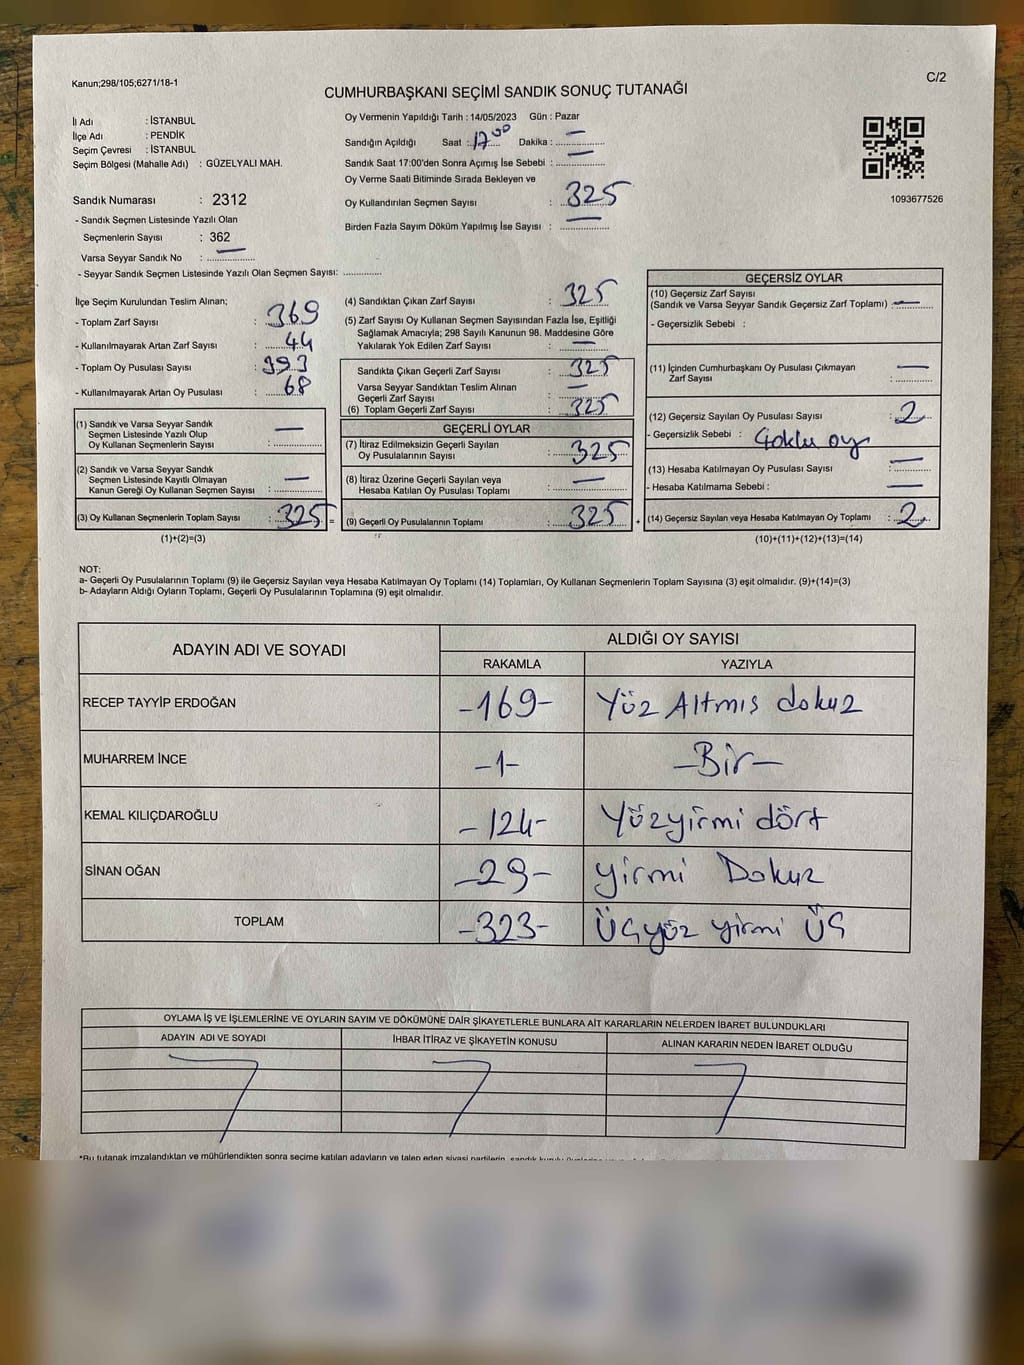 Kanun;298/105;6271/18-1
C/2
CUMHURBAŞKANI SEÇİMİ SANDIK SONUÇ TUTANAĞI
İl Adı : İSTANBUL
İlçe Adı : PENDİK
Seçim Çevresi : İSTANBUL
Seçim Bölgesi (Mahalle Adı) : GÜZELYALI MAH.
Sandık Numarası : 2312
- Sandık Seçmen Listesinde Yazılı Olan
Seçmenlerin Sayısı : 362
Varsa Seyyar Sandık No : —
- Seyyar Sandık Seçmen Listesinde Yazılı Olan Seçmen Sayısı: ..............
Oy Vermenin Yapıldığı Tarih : 14/05/2023 Gün : Pazar
Sandığın Açıldığı Saat : 17.00 Dakika : —
Sandık Saat 17:00'den Sonra Açımış İse Sebebi : —
Oy Verme Saati Bitiminde Sırada Bekleyen ve
Oy Kullandırılan Seçmen Sayısı : 325
Birden Fazla Sayım Döküm Yapılmış İse Sayısı : —
1093677526
İlçe Seçim Kurulundan Teslim Alınan;
- Toplam Zarf Sayısı : 369
- Kullanılmayarak Artan Zarf Sayısı : 44
- Toplam Oy Pusulası Sayısı : 393
- Kullanılmayarak Artan Oy Pusulası : 68
(1) Sandık ve Varsa Seyyar Sandık
Seçmen Listesinde Yazılı Olup
Oy Kullanan Seçmenlerin Sayısı : —
(2) Sandık ve Varsa Seyyar Sandık
Seçmen Listesinde Kayıtlı Olmayan
Kanun Gereği Oy Kullanan Seçmen Sayısı : —
(3) Oy Kullanan Seçmenlerin Toplam Sayısı : 325 =
(1)+(2)=(3)
(4) Sandıktan Çıkan Zarf Sayısı : 325
(5) Zarf Sayısı Oy Kullanan Seçmen Sayısından Fazla İse, Eşitliği
Sağlamak Amacıyla; 298 Sayılı Kanunun 98. Maddesine Göre
Yakılarak Yok Edilen Zarf Sayısı : —
Sandıkta Çıkan Geçerli Zarf Sayısı : 325
Varsa Seyyar Sandıktan Teslim Alınan
Geçerli Zarf Sayısı : —
(6) Toplam Geçerli Zarf Sayısı : 325
GEÇERLİ OYLAR
(7) İtiraz Edilmeksizin Geçerli Sayılan
Oy Pusulalarının Sayısı : 325
(8) İtiraz Üzerine Geçerli Sayılan veya
Hesaba Katılan Oy Pusulası Toplamı : —
(9) Geçerli Oy Pusulalarının Toplamı : 325 +
GEÇERSİZ OYLAR
(10) Geçersiz Zarf Sayısı
(Sandık ve Varsa Seyyar Sandık Geçersiz Zarf Toplamı) : —
- Geçersizlik Sebebi :
(11) İçinden Cumhurbaşkanı Oy Pusulası Çıkmayan
Zarf Sayısı : —
(12) Geçersiz Sayılan Oy Pusulası Sayısı : 2
- Geçersizlik Sebebi : Çoklu oy
(13) Hesaba Katılmayan Oy Pusulası Sayısı : —
- Hesaba Katılmama Sebebi : —
(14) Geçersiz Sayılan veya Hesaba Katılmayan Oy Toplamı : 2
(10)+(11)+(12)+(13)=(14)
NOT:
a- Geçerli Oy Pusulalarının Toplamı (9) ile Geçersiz Sayılan veya Hesaba Katılmayan Oy Toplamı (14) Toplamları, Oy Kullanan Seçmenlerin Toplam Sayısına (3) eşit olmalıdır. (9)+(14)=(3)
b- Adayların Aldığı Oyların Toplamı, Geçerli Oy Pusulalarının Toplamına (9) eşit olmalıdır.
ADAYIN ADI VE SOYADI ALDIĞI OY SAYISI
RAKAMLA YAZIYLA
RECEP TAYYİP ERDOĞAN -169- Yüz Altmıs dokuz
MUHARREM İNCE -1- -Bir-
KEMAL KILIÇDAROĞLU -124- Yüzyirmi dört
SİNAN OĞAN -29- yirmi Dokuz
TOPLAM -323- Üçyüz yirmi Üç
OYLAMA İŞ VE İŞLEMLERİNE VE OYLARIN SAYIM VE DÖKÜMÜNE DAİR ŞİKAYETLERLE BUNLARA AİT KARARLARIN NELERDEN İBARET BULUNDUKLARI
ADAYIN ADI VE SOYADI İHBAR İTİRAZ VE ŞİKAYETİN KONUSU ALINAN KARARIN NEDEN İBARET OLDUĞU
*Bu tutanak imzalandıktan ve mühürlendikten sonra seçime katılan adayların ve talep eden siyasi partilerin, sandık kurulu